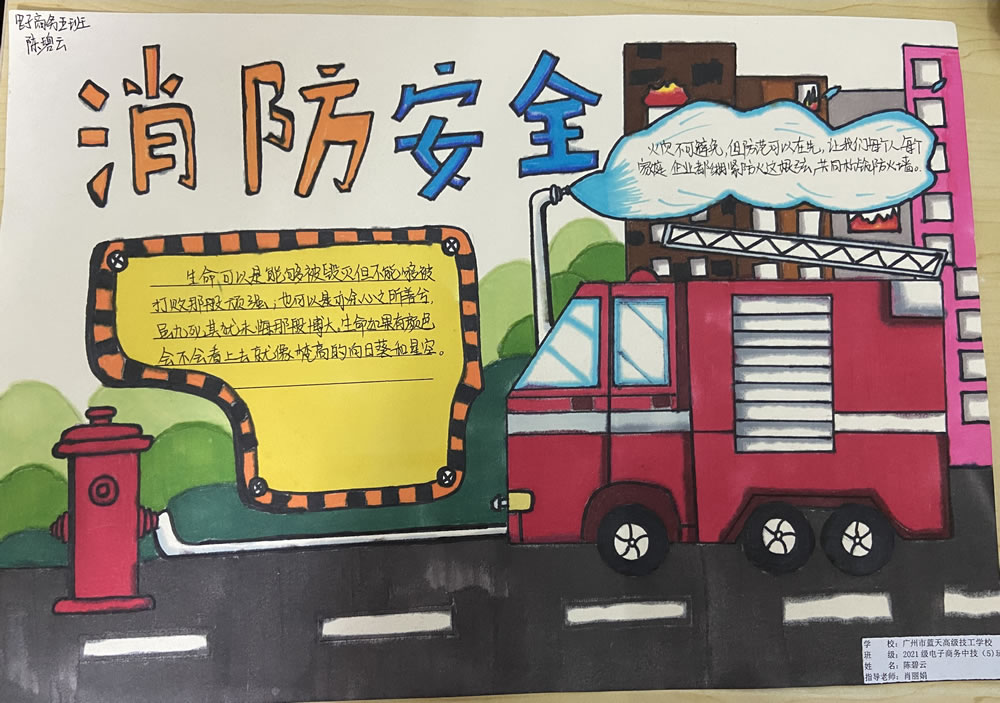 电子商务五班
陈碧云
消防安全
火灾不可避免,但防范可以在先,让我们每个人每个
家庭 企业都绷紧防火这根弦,共同构筑防火墙。
生命可以是能够被毁灭但不能够被
打败那般顽强;也可以是亦余心之所善兮,
虽九死其犹未悔那般博大。生命如果有颜色
会不会看上去就像梵高的向日葵和星空。
学 校:广州市蓝天高级技工学校
班 级:2021级电子商务中技(5)班
姓 名:陈碧云
指导老师:肖丽娟